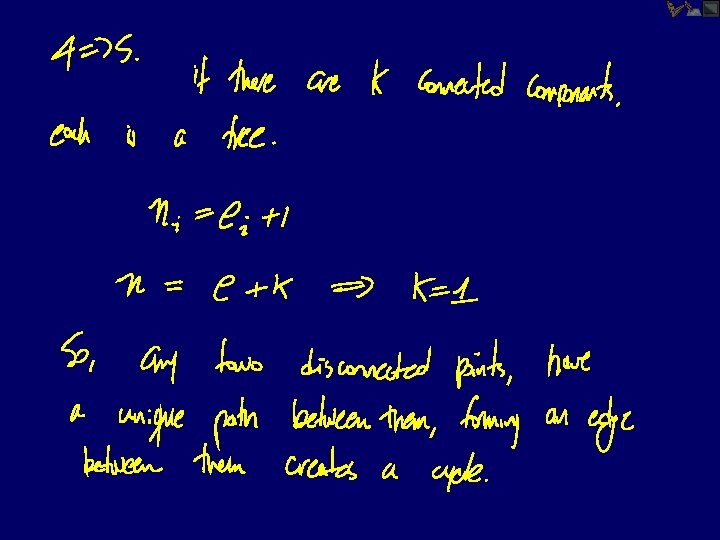 4=>5. if there are K connected components.
each is a tree.
n_i = e_i + 1
n = e + K => K=1
So, any two disconnected points, have
a unique path between them, forming an edge
between them creates a cycle.